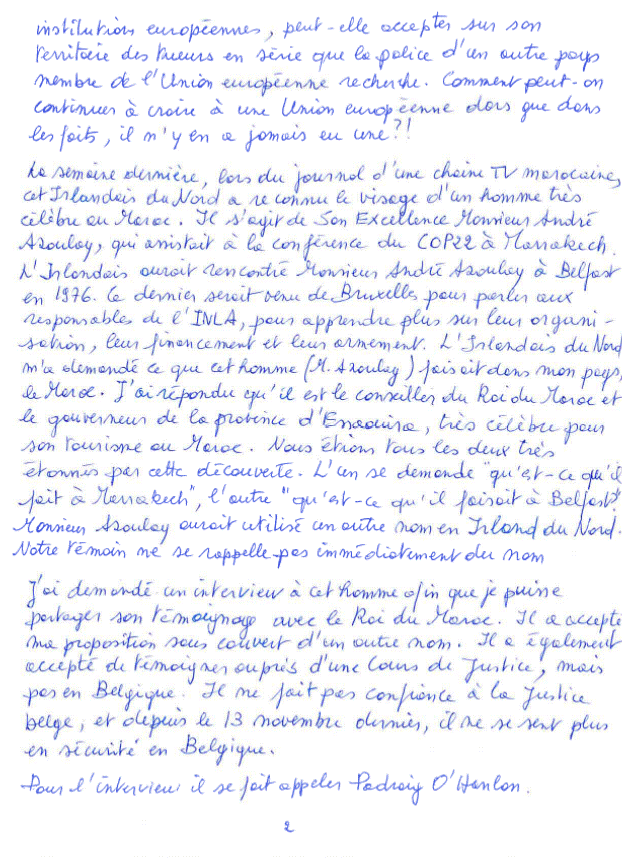 institutions européennes, peut-elle accepter sur son
territoire des tueurs en série que la police d'un autre pays
membre de l'Union européenne recherche. Comment peut-on
continuer à croire à une Union européenne alors que dans
les faits, il n'y en a jamais eu une ?!
La semaine dernière, lors du journal d'une chaîne TV marocaine,
cet Irlandais du Nord a reconnu le visage d'un homme très
célèbre au Maroc. Il s'agit de Son Excellence Monsieur André
Azoulay, qui assistait à la conférence du COP22 à Marrakech.
L'Irlandais aurait rencontré Monsieur André Azoulay à Belfast
en 1976. Ce dernier serait venu de Bruxelles pour parler aux
responsables de l'INLA, pour apprendre plus sur leur organi-
sation, leur financement et leur armement. L'Irlandais du Nord
m'a demandé ce que cet homme (M. Azoulay) faisait dans mon pays,
le Maroc. J'ai répondu qu'il est le conseiller du Roi du Maroc et
le gouverneur de la province d'Essaouira, très célèbre pour
son tourisme au Maroc. Nous étions tous les deux très
étonnés par cette découverte. L'un se demande "qu'est-ce qu'il
fait à Marrakech", l'autre "qu'est-ce qu'il faisait à Belfast?"
Monsieur Azoulay aurait utilisé un autre nom en Irland du Nord.
Notre témoin ne se rappelle pas immédiatement du nom
J'ai demandé un interview à cet homme afin que je puisse
partager son témoignage avec le Roi du Maroc. Il a accepté
ma proposition sous couvert d'un autre nom. Il a également
accepté de témoigner auprès d'une Cours de Justice, mais
pas en Belgique. Il ne fait pas confiance à la Justice
belge, et depuis le 13 novembre dernier, il ne se sent plus
en sécurité en Belgique.
Pour l'interview il se fait appeler Padraig O'Hanlon.
2